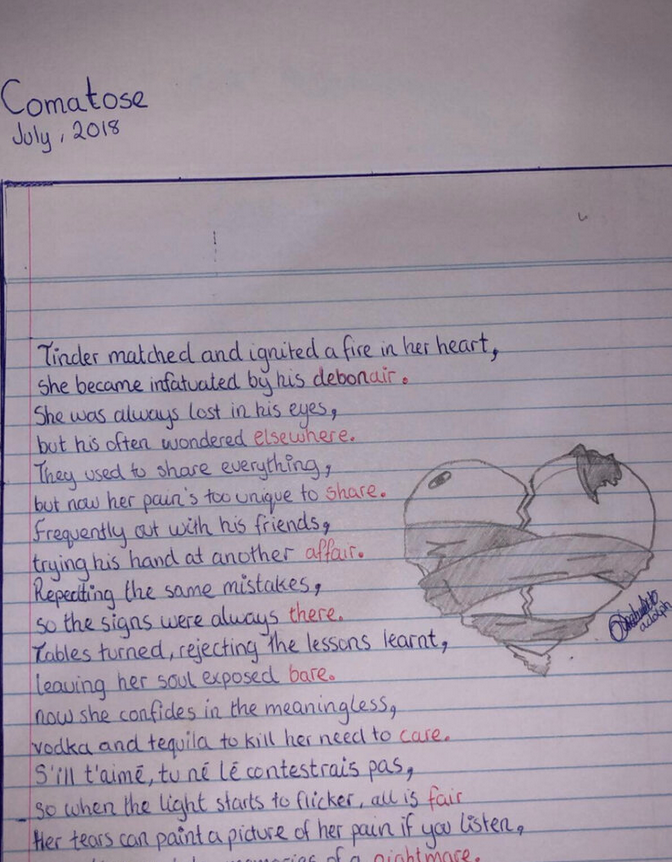 Comatose
July, 2018
Tinder matched and ignited a fire in her heart,
she became infatuated by his debonair.
She was always lost in his eyes,
but his often wondered elsewhere.
They used to share everything,
but now her pain's too unique to share.
Frequently out with his friends,
trying his hand at another affair.
Repeating the same mistakes,
so the signs were always there.
Tables turned, rejecting the lessons learnt,
leaving her soul exposed bare.
now she confides in the meaningless,
vodka and tequila to kill her need to care.
S'ill t'aimé, tu né lé contestrais pas,
so when the light starts to flicker, all is fair
Her tears can paint a picture of her pain if you listen,
of a nightmare.
adolph